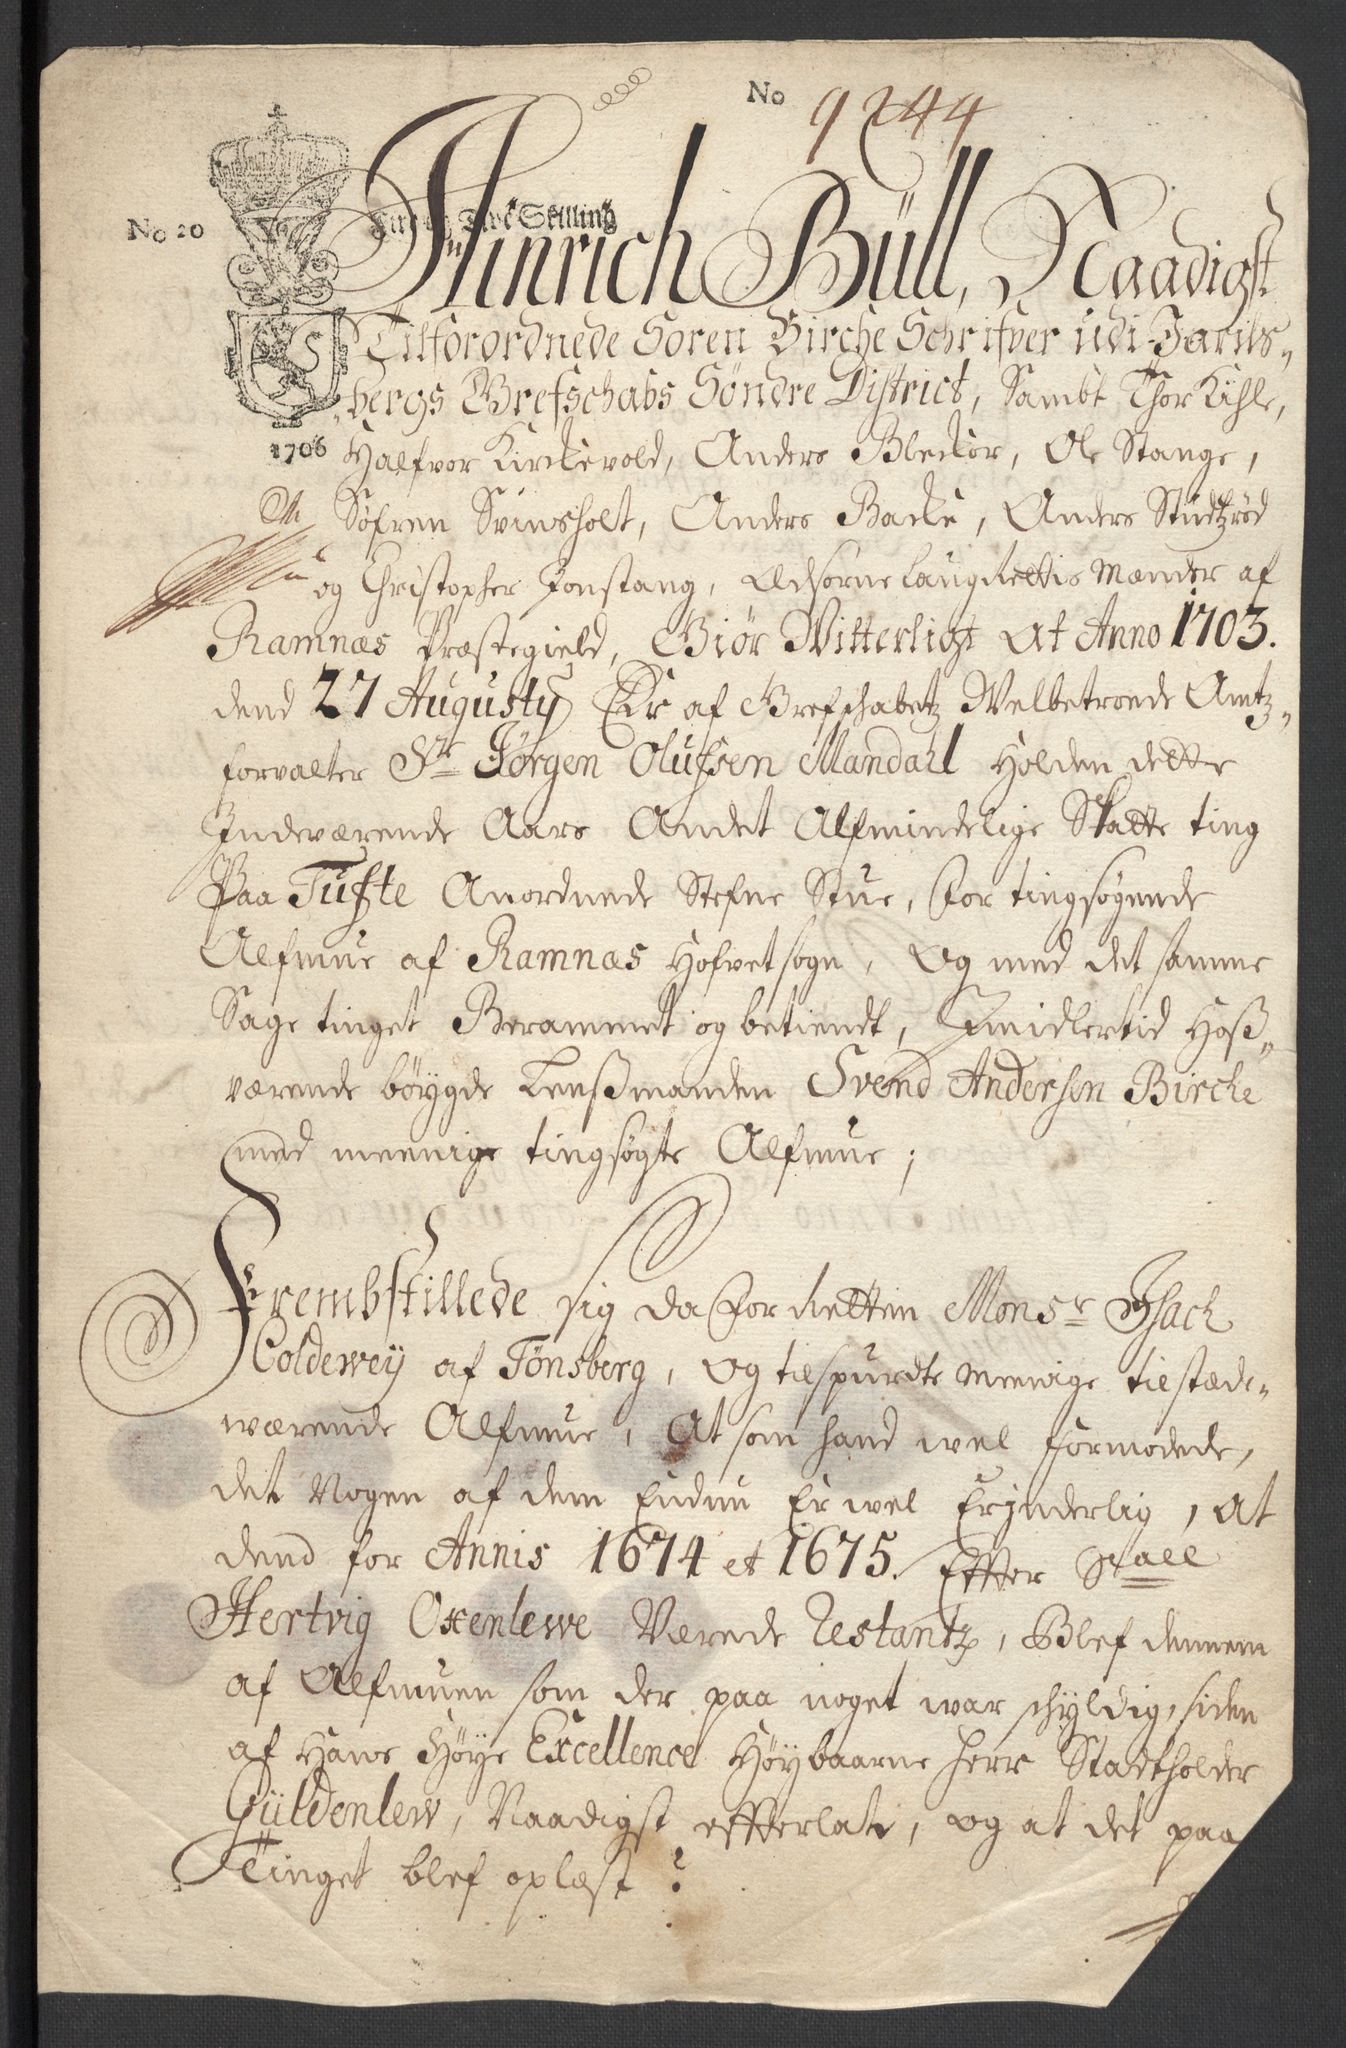 No 9244
No 20
Fire og Tive Skilling
1706
Hinrich Büll, Naadigst
Tilforordnede Soren Birche Schrifver udi Jarils-
bergs Grefschabs Søndre District, Sambt Thor Kihle,
Halfvor Kirckevold, Anders Bleckør, Ole Stange,
Søfren Svinsholt, Anders Backe, Anders Studtzrød
og Christopher Fonstang, Edsorne Laugrettis Mænder af
Ramnæs Præstegield, Giør Witterligt At Anno 1703.
dend 27 Augusty Er af Grefschabetz Welbetroede Amtz-
forvalter Sr Jørgen Olufsen Mandahl Holden dette
Indeværende Aars Andet Alfmindelige Skatte ting
Paa Tufte Anordnede Stefne Stue, for tingsøgende
Alfmue af Ramnæs Hofvetsogn, Og med det samme
Sage tinget Berammet og betiendt, Imidlertid Hoß-
værende bøygde Lenßmanden Svend Andersen Birche
med meenige tingsøgte Alfmue;
Frembstillede sig da for Retten Monsr Isach
Coldewey af Tønsberg, Og tilspurdte Meenige tilstæde-
wærende Alfmue, At som hand wel formodede,
det Nogen af dem Endnu Er wel Erinderlig, At
dend for Annis 1674 et 1675. Effter Sr all
Hertvig Oxenlewe Værede Restantz, Blef dennem
af Alfmuen som der paa noget war schyldig, siden
af Hans Høye Excellence Høybaarne Herr Stadtholder
Güldenlew, Naadigst effterlat, og at det paa
Tinget blef oplæst ?